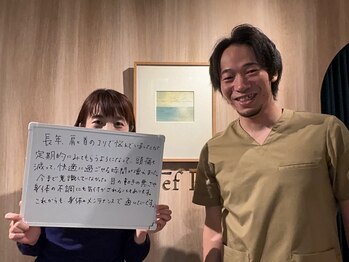 長年、肩と首のコリで悩んでいましたが
定期的にみてもらうようになって、頭痛も
減って、快適に過ごせる時間が増えました。
今まで意識していなかった目の動きの悪さや
身体の不調にも気付かされることもあります。
これからも、身体のメンテナンスで通いたいです。
ef